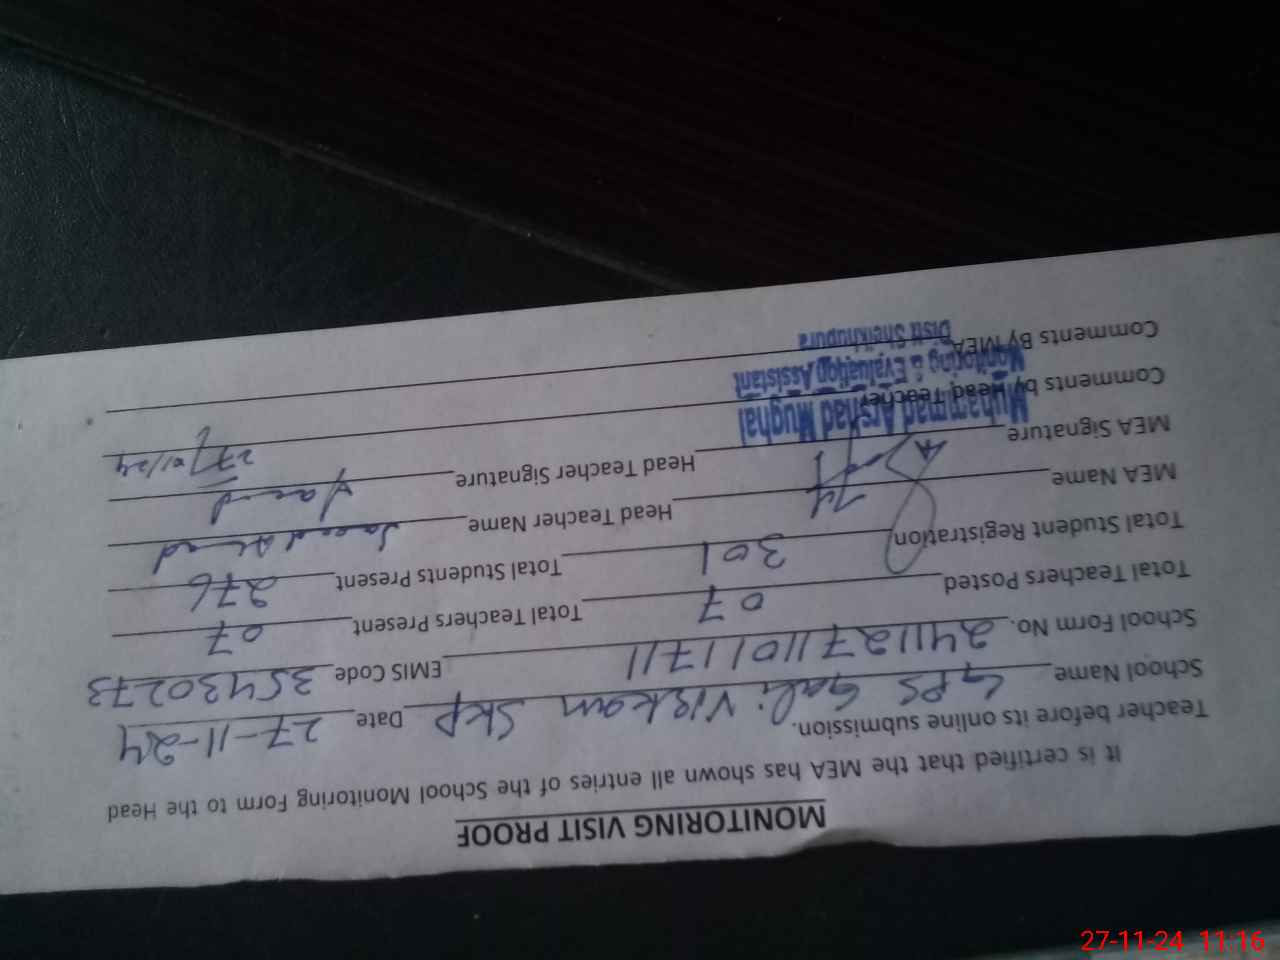 MONITORING VISIT PROOF
It is certified that the MEA has shown all entries of the School Monitoring Form to the Head
Teacher before its online submission.
School Name GPS Gali Virkan Skp Date 27-11-24
School Form No. 24112711011711 EMIS Code 35430273
Total Teachers Posted 07 Total Teachers Present 07
Total Student Registration 301 Total Students Present 276
MEA Name 74 Head Teacher Name
MEA Signature Head Teacher Signature
Comments by Head Teacher
Comments By MEA
Muhammad Arshad Mughal
Monitoring & Evaluation Assistant
Distt Sheikhupura
27-11-24 11:16